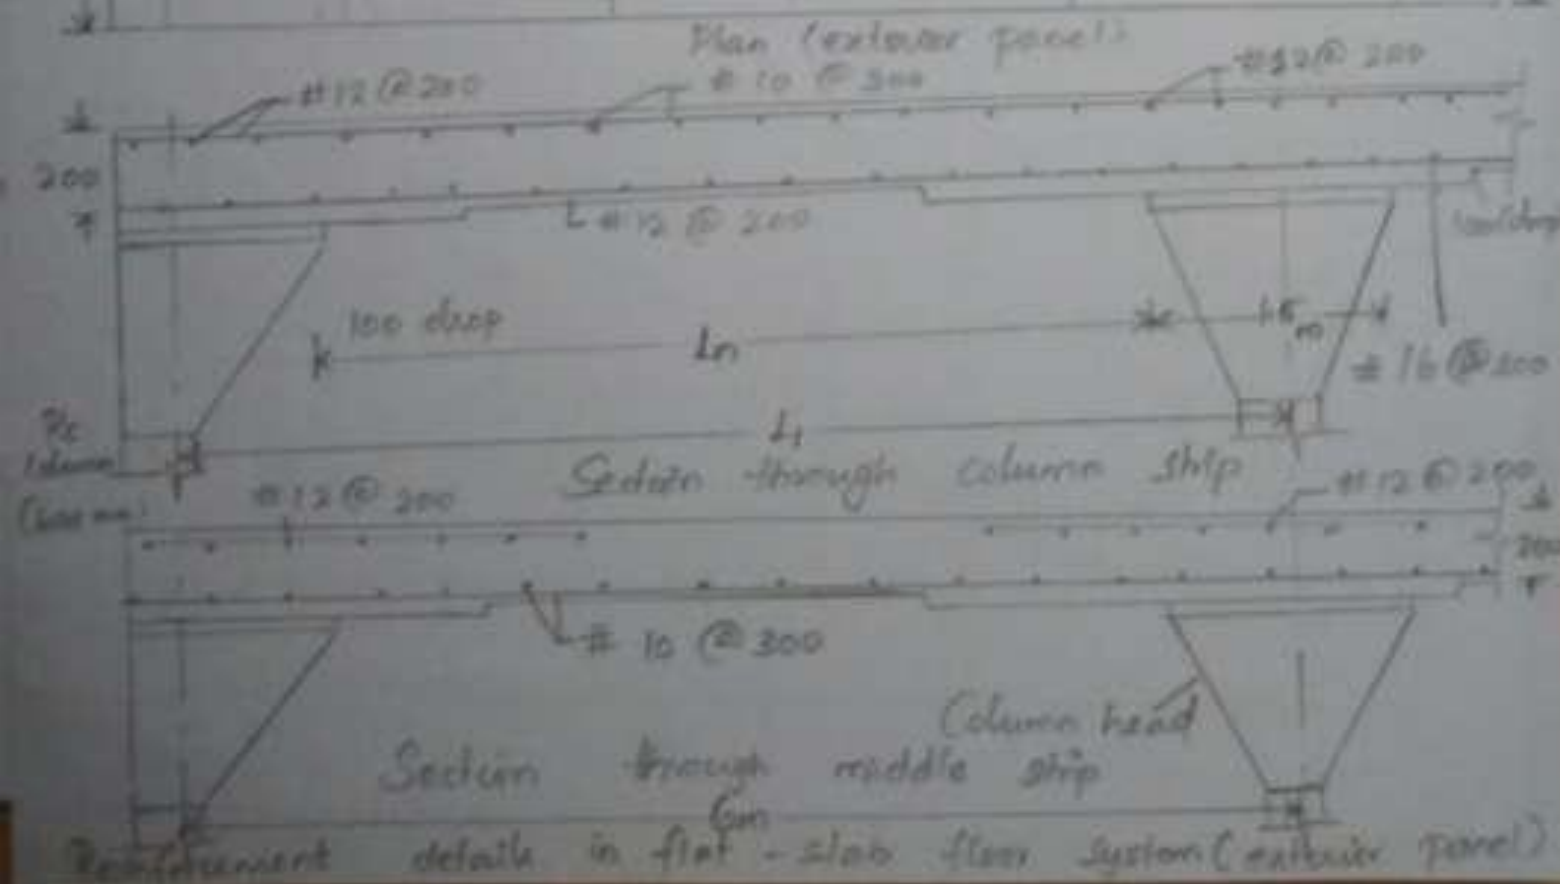 Plan (exterior panel)
#12 @ 200
# 10 @ 300
#12@ 200
200
L #12 @ 200
100 drop
100 drop
Ln
1.5m
# 16 @ 200
L1
Column
Section through column strip
#12 @ 200
#12 @ 200
200
# 10 @ 300
Column head
Section through middle strip
6m
Reinforcement details in flat - slab floor system (exterior panel)